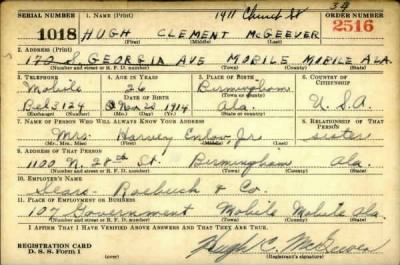 1911 Church St 34
SERIAL NUMBER 1. NAME (Print) ORDER NUMBER
1018 HUGH CLEMENT McGEEVER 2516
(First) (Middle) (Last)
2. ADDRESS (Print)
172 S. GEORGIA AVE MOBILE MOBILE ALA.
(Number and street or R. F. D. number) (Town) (County) (State)
3. TELEPHONE 4. AGE IN YEARS 5. PLACE OF BIRTH 6. COUNTRY OF CITIZENSHIP
Mobile 26 Birmingham
DATE OF BIRTH (Town or county)
Bel 3124 Nov 23, 1914 Ala. U.S.A.
(Exchange) (Number) (Mo.) (Day) (Yr.) (State or country)
7. NAME OF PERSON WHO WILL ALWAYS KNOW YOUR ADDRESS 8. RELATIONSHIP OF THAT PERSON
Mrs. Harvey Enlow, Jr. sister
(Mr., Mrs., Miss) (First) (Middle) (Last)
9. ADDRESS OF THAT PERSON
1100 N. 28th St. Birmingham Ala.
(Number and street or R. F. D. number) (Town) (County) (State)
10. EMPLOYER'S NAME
Sears Roebuck & Co.
11. PLACE OF EMPLOYMENT OR BUSINESS
107 Government Mobile Mobile Ala.
(Number and street or R. F. D. number) (Town) (County) (State)
I AFFIRM THAT I HAVE VERIFIED ABOVE ANSWERS AND THAT THEY ARE TRUE.
REGISTRATION CARD
D. S. S. Form 1 Hugh C. McGeever
(Registrant's signature)